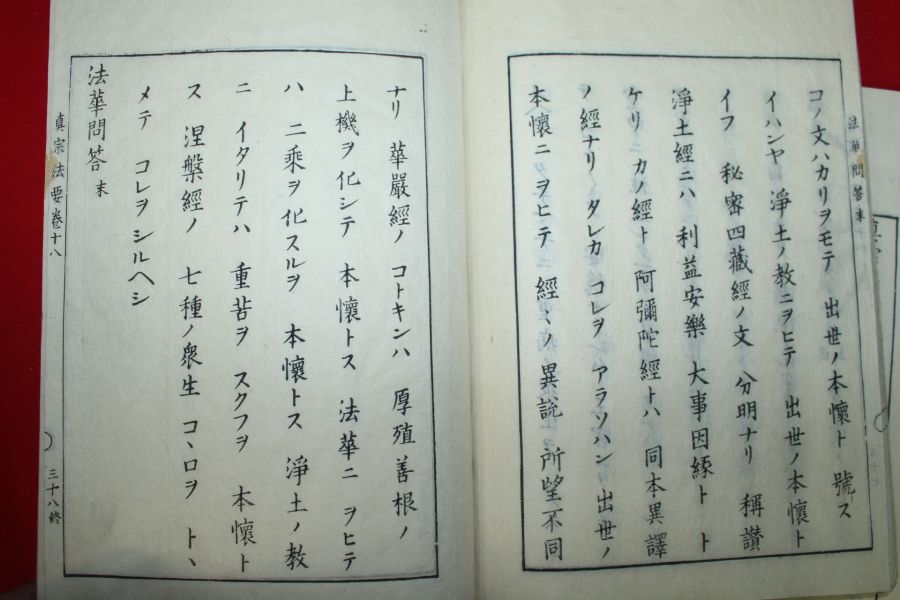 法華問答末
コノ文ハカリヲモテ 出世ノ本懷ト 號ス
イハンヤ 淨土ノ教ニヲヒテ 出世ノ本懷ト
イフ 秘密四藏經ノ文 分明ナリ 稱讃
淨土經ニハ 利益安樂 大事因縁ト ト
ケリ カノ經ト 阿彌陀經トハ 同本異譯
ノ經ナリ タレカ コレヲ アラソハン 出世ノ
本懷ニヲヒテ 經〻ノ 異説 所望不同
ナリ 華嚴經ノ コトキンハ 厚殖善根ノ
上機ヲ化シテ 本懷トス 法華ニ ヲヒテ
ハ 二乘ヲ化スルヲ 本懷トス 淨土ノ教
ニ イタリテハ 重苦ヲ スクフヲ 本懷ト
ス 涅槃經ノ 七種ノ衆生 コヽロヲ トヽ
メテ コレヲ シルヘシ
法華問答末
真宗法要卷十八
三十八終